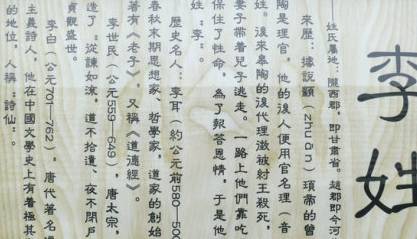 李姓
姓氏屬地：隴西郡，即甘肅省。趙郡即今河
來歷：據說顓（zhuān）頊帝的曾
陶是理官，他的後人便用官名理（音
姓。後來皋陶的後代理徵被紂王殺死，
妻子帶着兒子逃走。一路上他們靠吃
保住了性命，為了報答恩情，于是他
姓“李”。
歷史名人：李耳（約公元前580—500
春秋末期思想家、哲學家，道家的創始
著有《老子》，又稱《道德經》。
李世民（公元559—649），唐太宗，
造了“從諫如流，道不拾遺、夜不閉戶
貞觀盛世。
李白（公元701—762），唐代著名
主義詩人，他在中國文學史上有着極其
的地位，人稱“詩仙”。